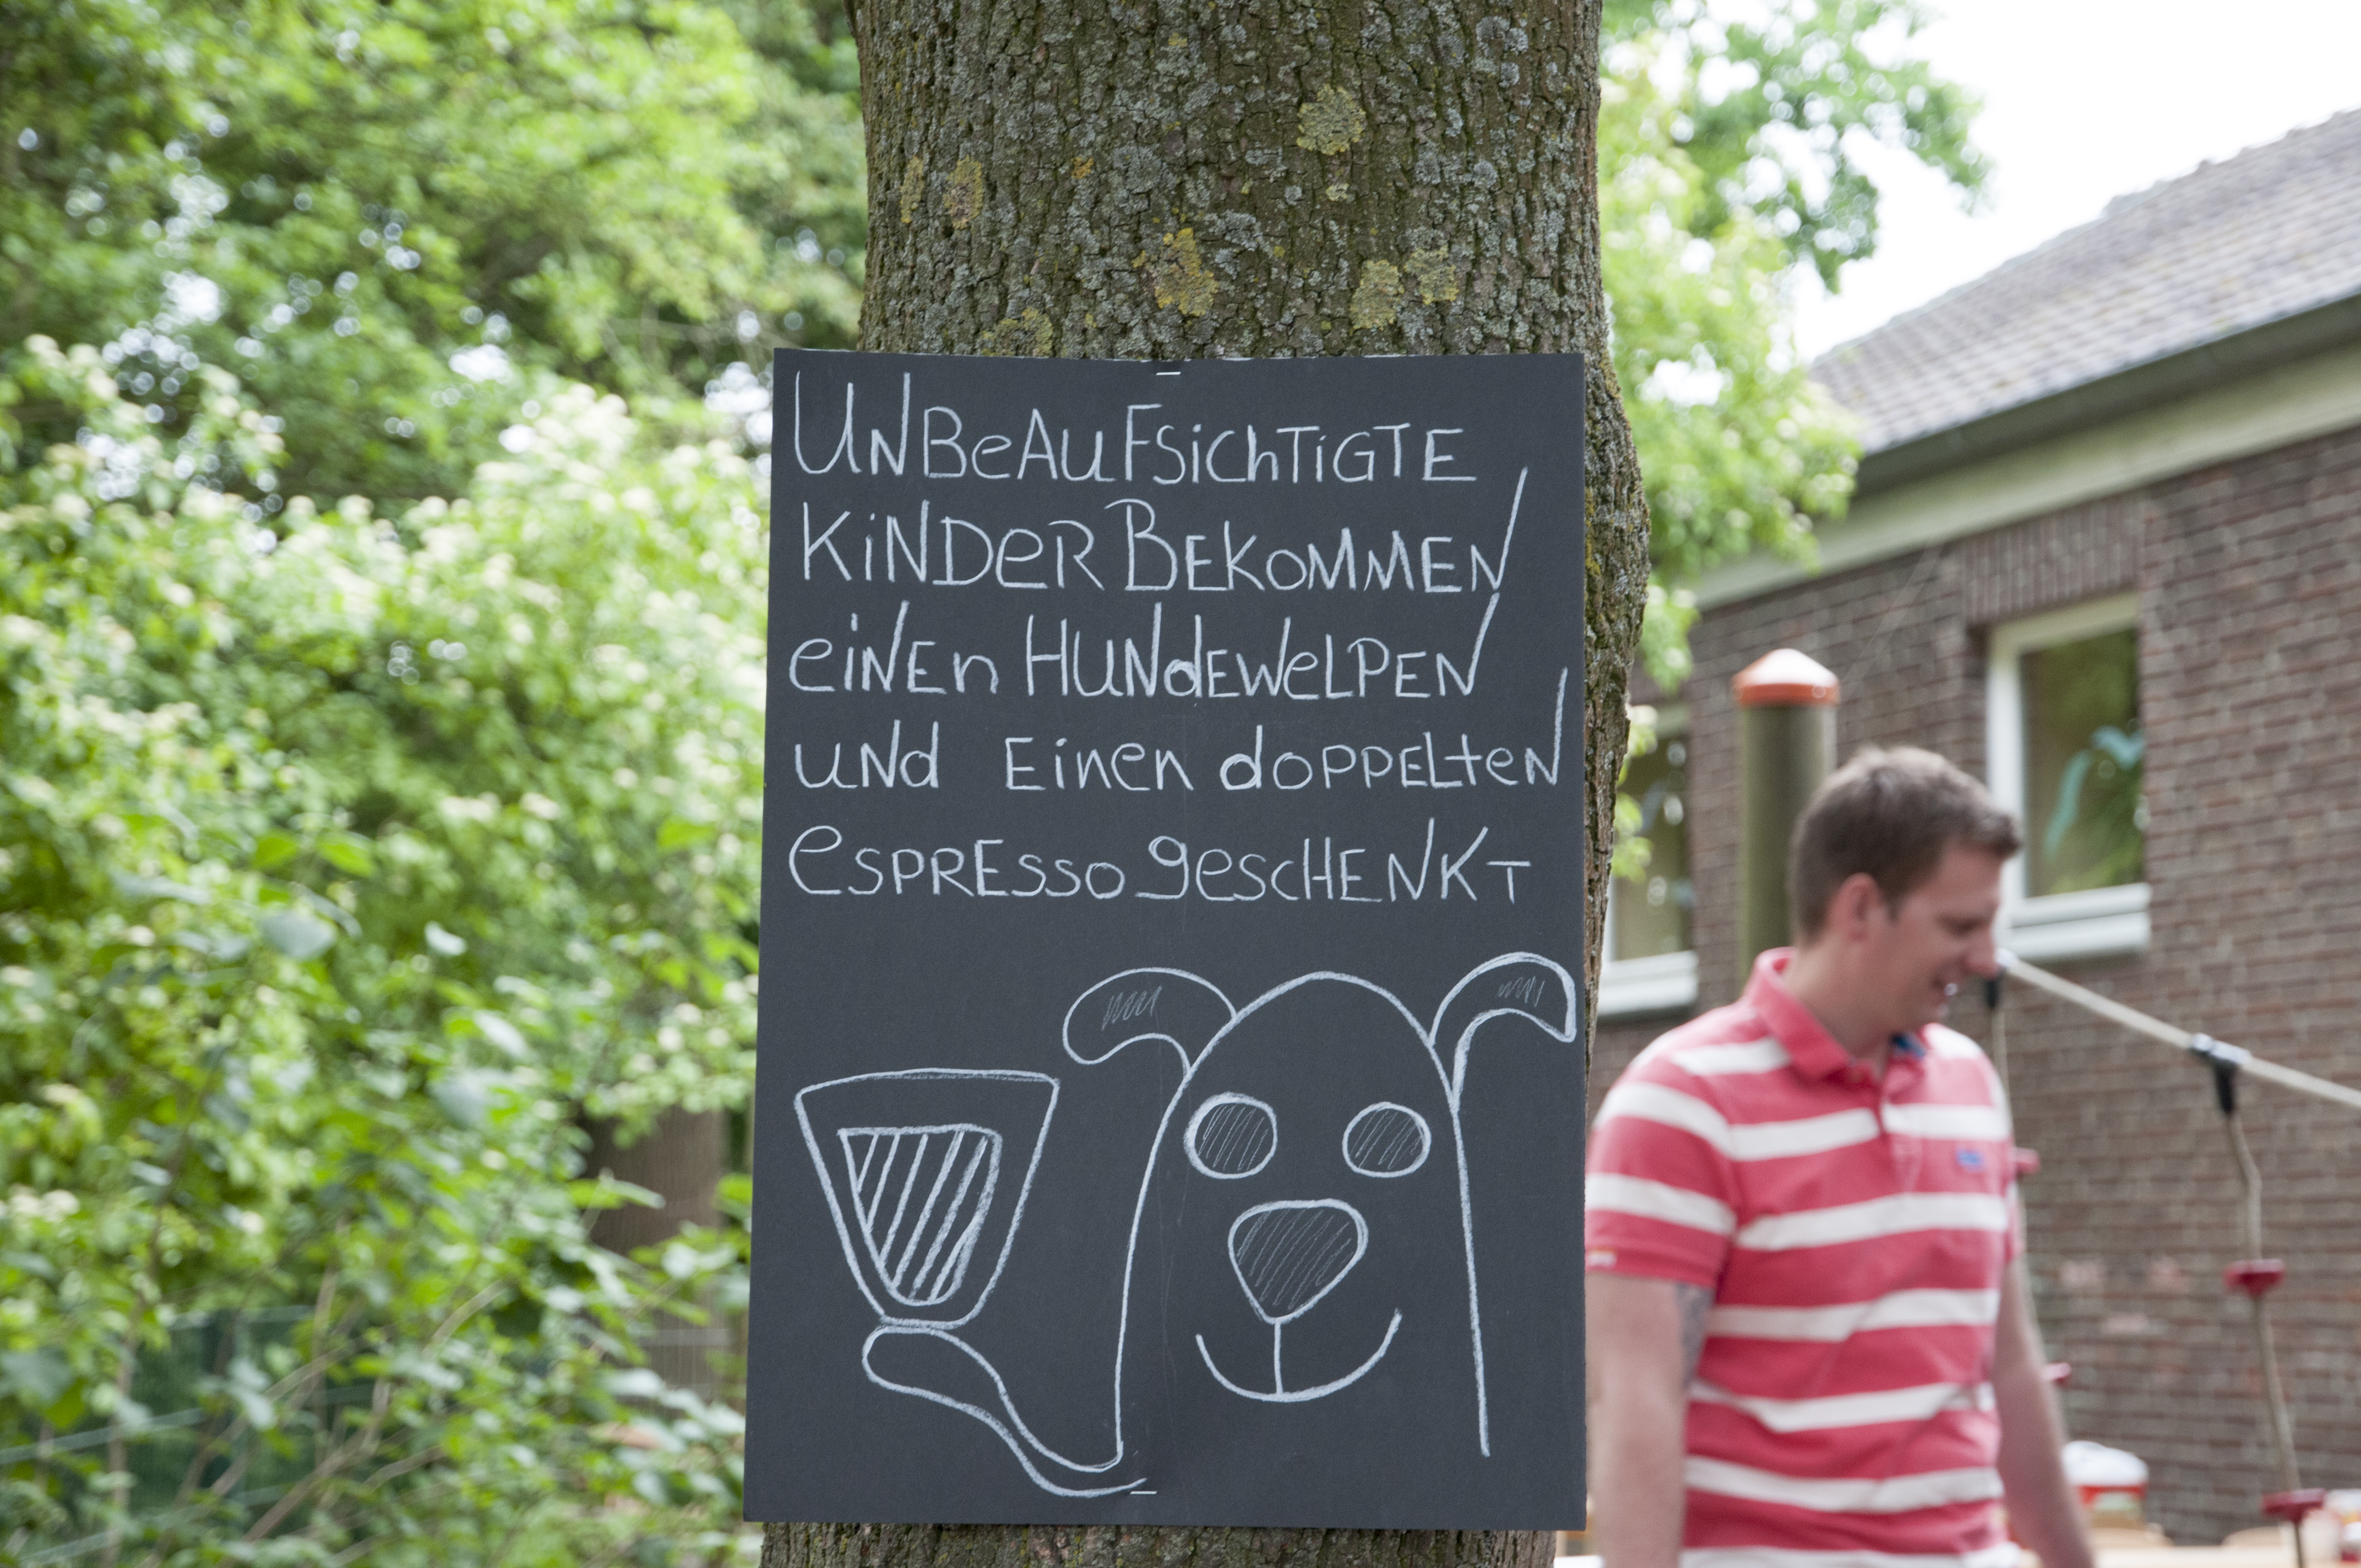 UNBeAUFSiChTiGTE
KiNDeR BEKoMMEN
eiNEn HUNdEWeLPEN
uNd Einen doPPELteN
eSPRESSo geSCHENKT